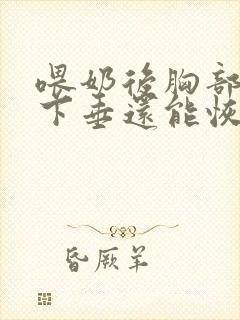 喂奶後胸部
下垂還能恢
昏厥羊